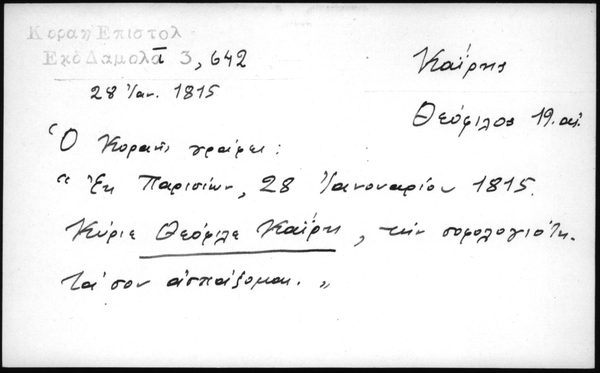 Κοραη Επιστολ
Εκδ Δαμαλα 3, 642
28 Ιαν. 1815
Καΐρης
Θεόφιλος 19. αἰ.
Ὁ Κοραῆς γράφει:
"Ἐκ Παρισίων, 28 Ἰανουαρίου 1815.
Κύριε Θεόφιλε Καΐρη, τὴν σοφολογιότη-
τά σου ἀσπάζομαι. "